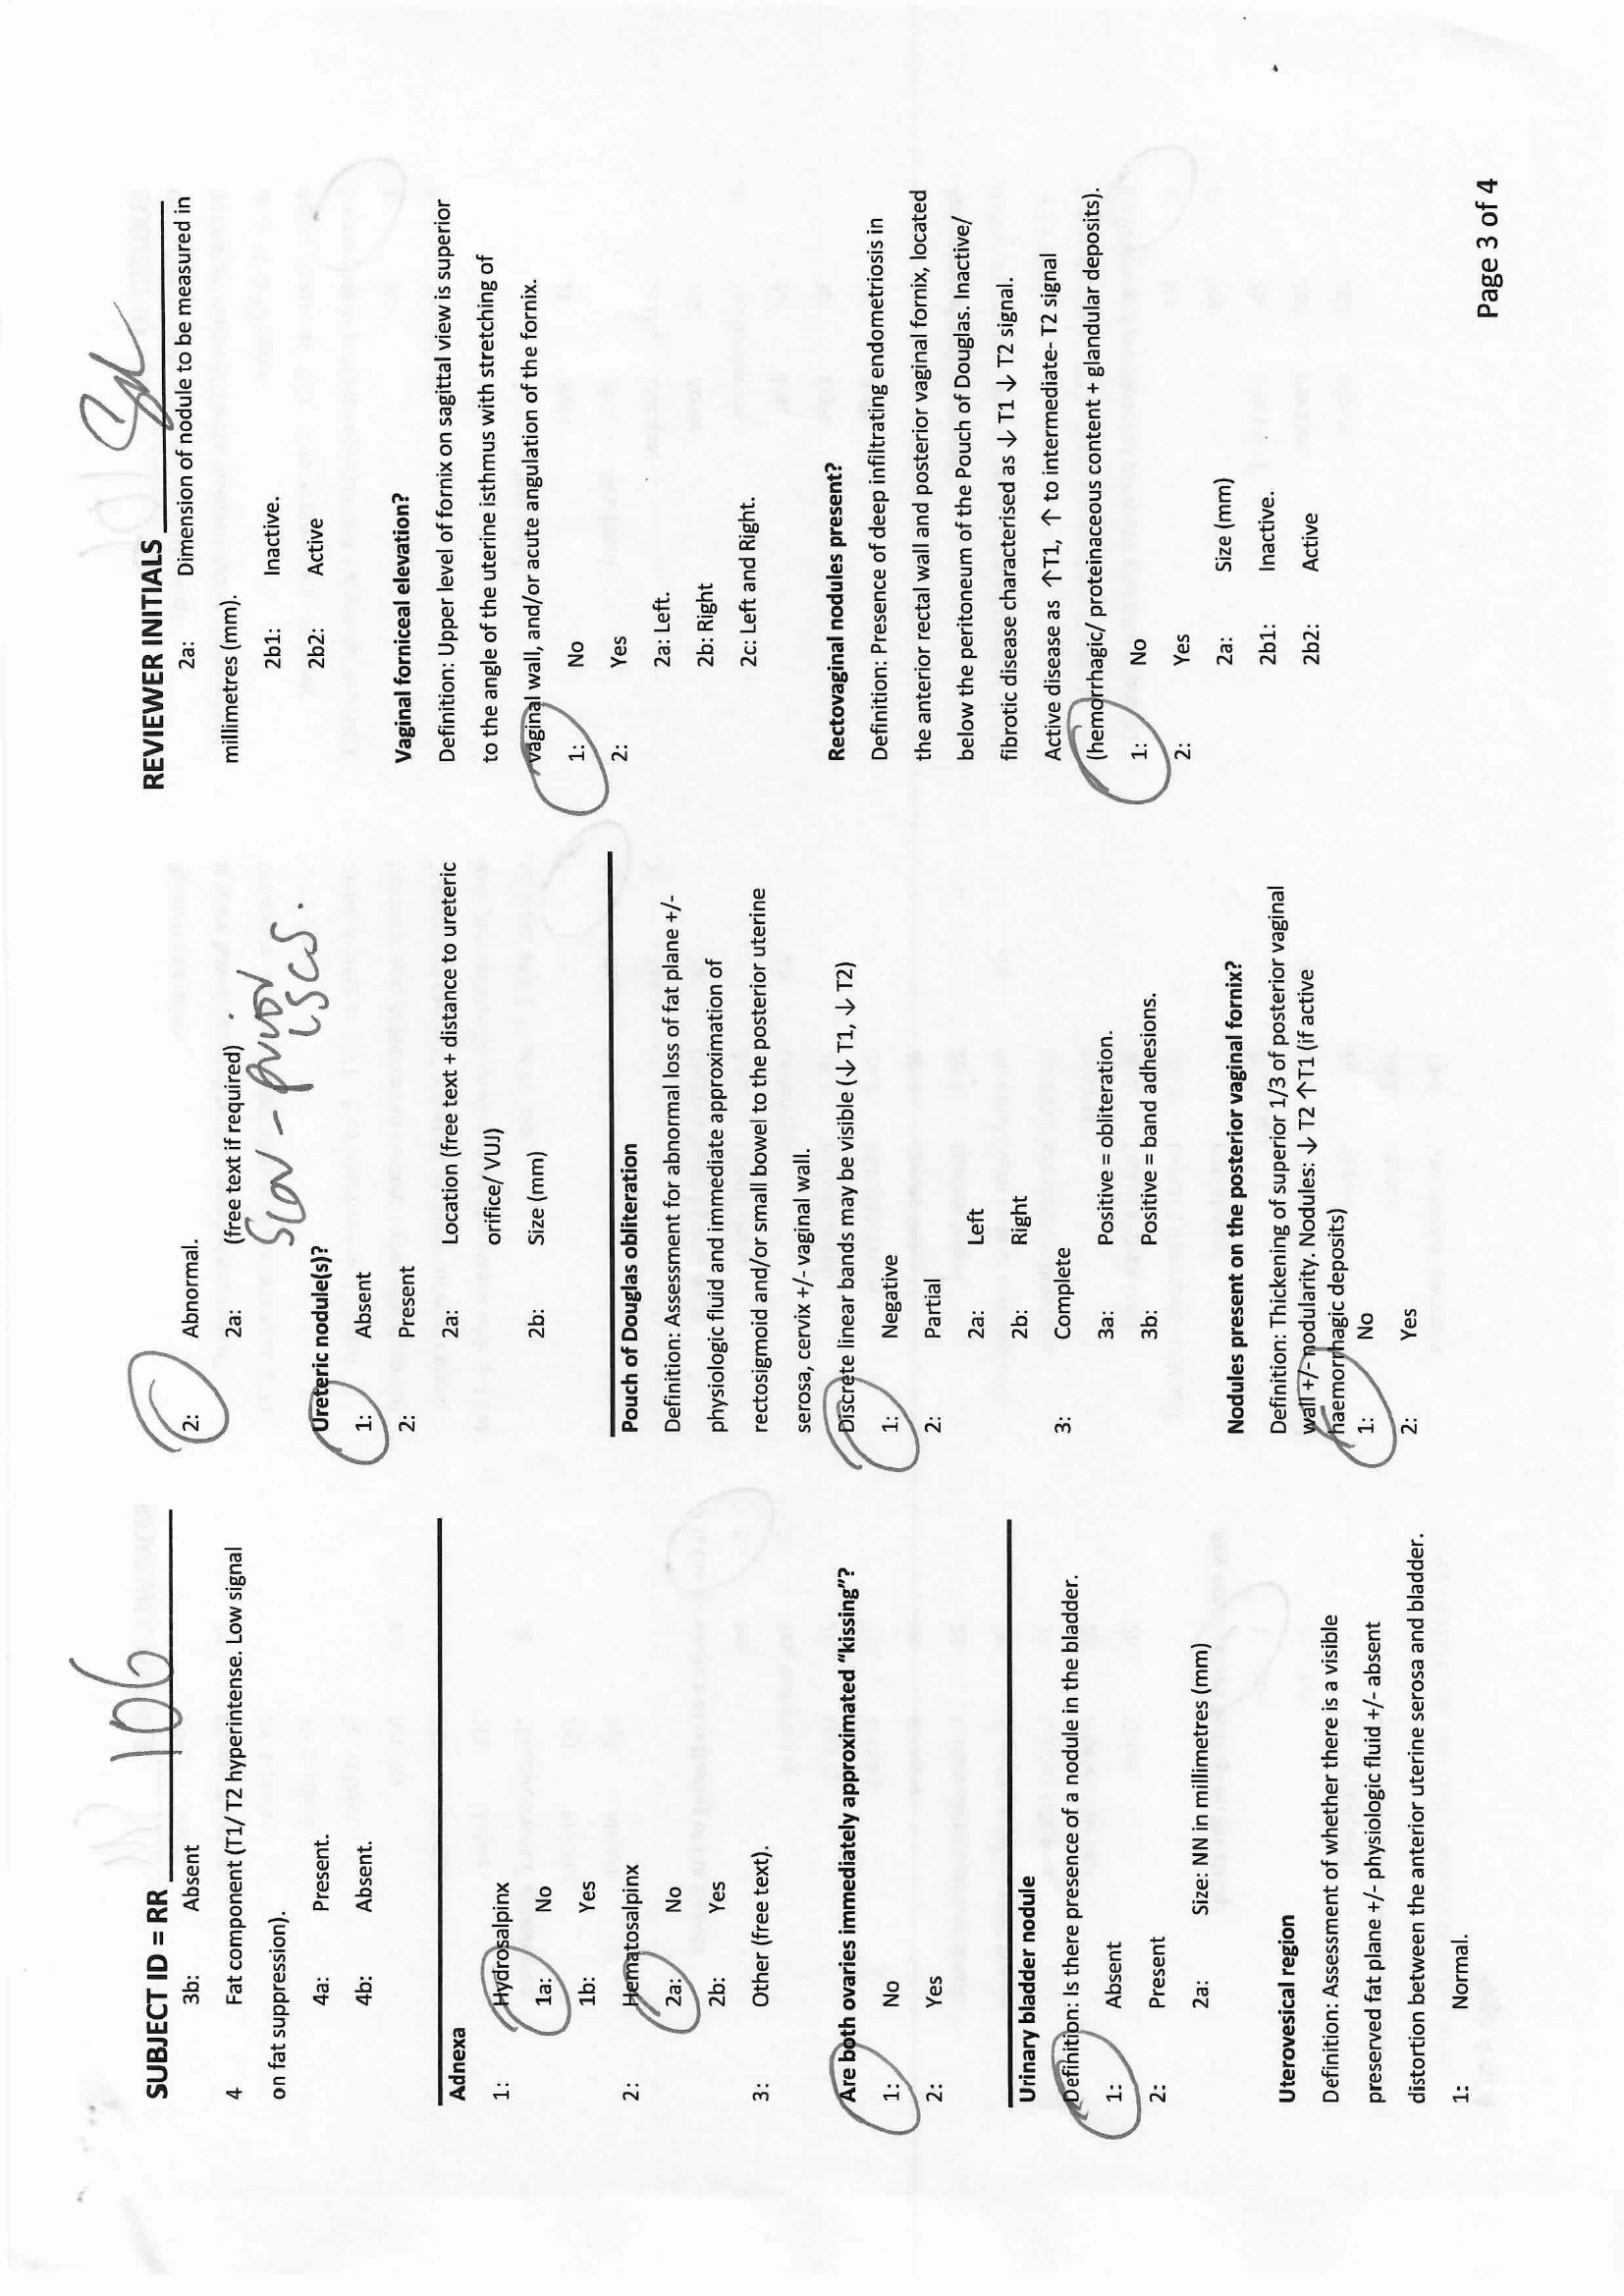 SUBJECT ID = RR 106
3b: Absent
4 Fat component (T1/ T2 hyperintense. Low signal
on fat suppression).
4a: Present.
4b: Absent.
Adnexa
1: Hydrosalpinx
1a: No
1b: Yes
2: Hematosalpinx
2a: No
2b: Yes
3: Other (free text).
Are both ovaries immediately approximated "kissing"?
1: No
2: Yes
Urinary bladder nodule
Definition: Is there presence of a nodule in the bladder.
1: Absent
2: Present
2a: Size: NN in millimetres (mm)
Uterovesical region
Definition: Assessment of whether there is a visible
preserved fat plane +/- physiologic fluid +/- absent
distortion between the anterior uterine serosa and bladder.
1: Normal.
2: Abnormal.
2a: (free text if required)
Scar - prior
LSCS.
Ureteric nodule(s)?
1: Absent
2: Present
2a: Location (free text + distance to ureteric
orifice/ VUJ)
2b: Size (mm)
Pouch of Douglas obliteration
Definition: Assessment for abnormal loss of fat plane +/-
physiologic fluid and immediate approximation of
rectosigmoid and/or small bowel to the posterior uterine
serosa, cervix +/- vaginal wall.
Discrete linear bands may be visible (↓ T1, ↓ T2)
1: Negative
2: Partial
2a: Left
2b: Right
3: Complete
3a: Positive = obliteration.
3b: Positive = band adhesions.
Nodules present on the posterior vaginal fornix?
Definition: Thickening of superior 1/3 of posterior vaginal
wall +/- nodularity. Nodules: ↓ T2 ↑T1 (if active
haemorrhagic deposits)
1: No
2: Yes
REVIEWER INITIALS
2a: Dimension of nodule to be measured in
millimetres (mm).
2b1: Inactive.
2b2: Active
Vaginal forniceal elevation?
Definition: Upper level of fornix on sagittal view is superior
to the angle of the uterine isthmus with stretching of
vaginal wall, and/or acute angulation of the fornix.
1: No
2: Yes
2a: Left.
2b: Right
2c: Left and Right.
Rectovaginal nodules present?
Definition: Presence of deep infiltrating endometriosis in
the anterior rectal wall and posterior vaginal fornix, located
below the peritoneum of the Pouch of Douglas. Inactive/
fibrotic disease characterised as ↓ T1 ↓ T2 signal.
Active disease as ↑T1, ↑ to intermediate- T2 signal
(hemorrhagic/ proteinaceous content + glandular deposits).
1: No
2: Yes
2a: Size (mm)
2b1: Inactive.
2b2: Active
Page 3 of 4